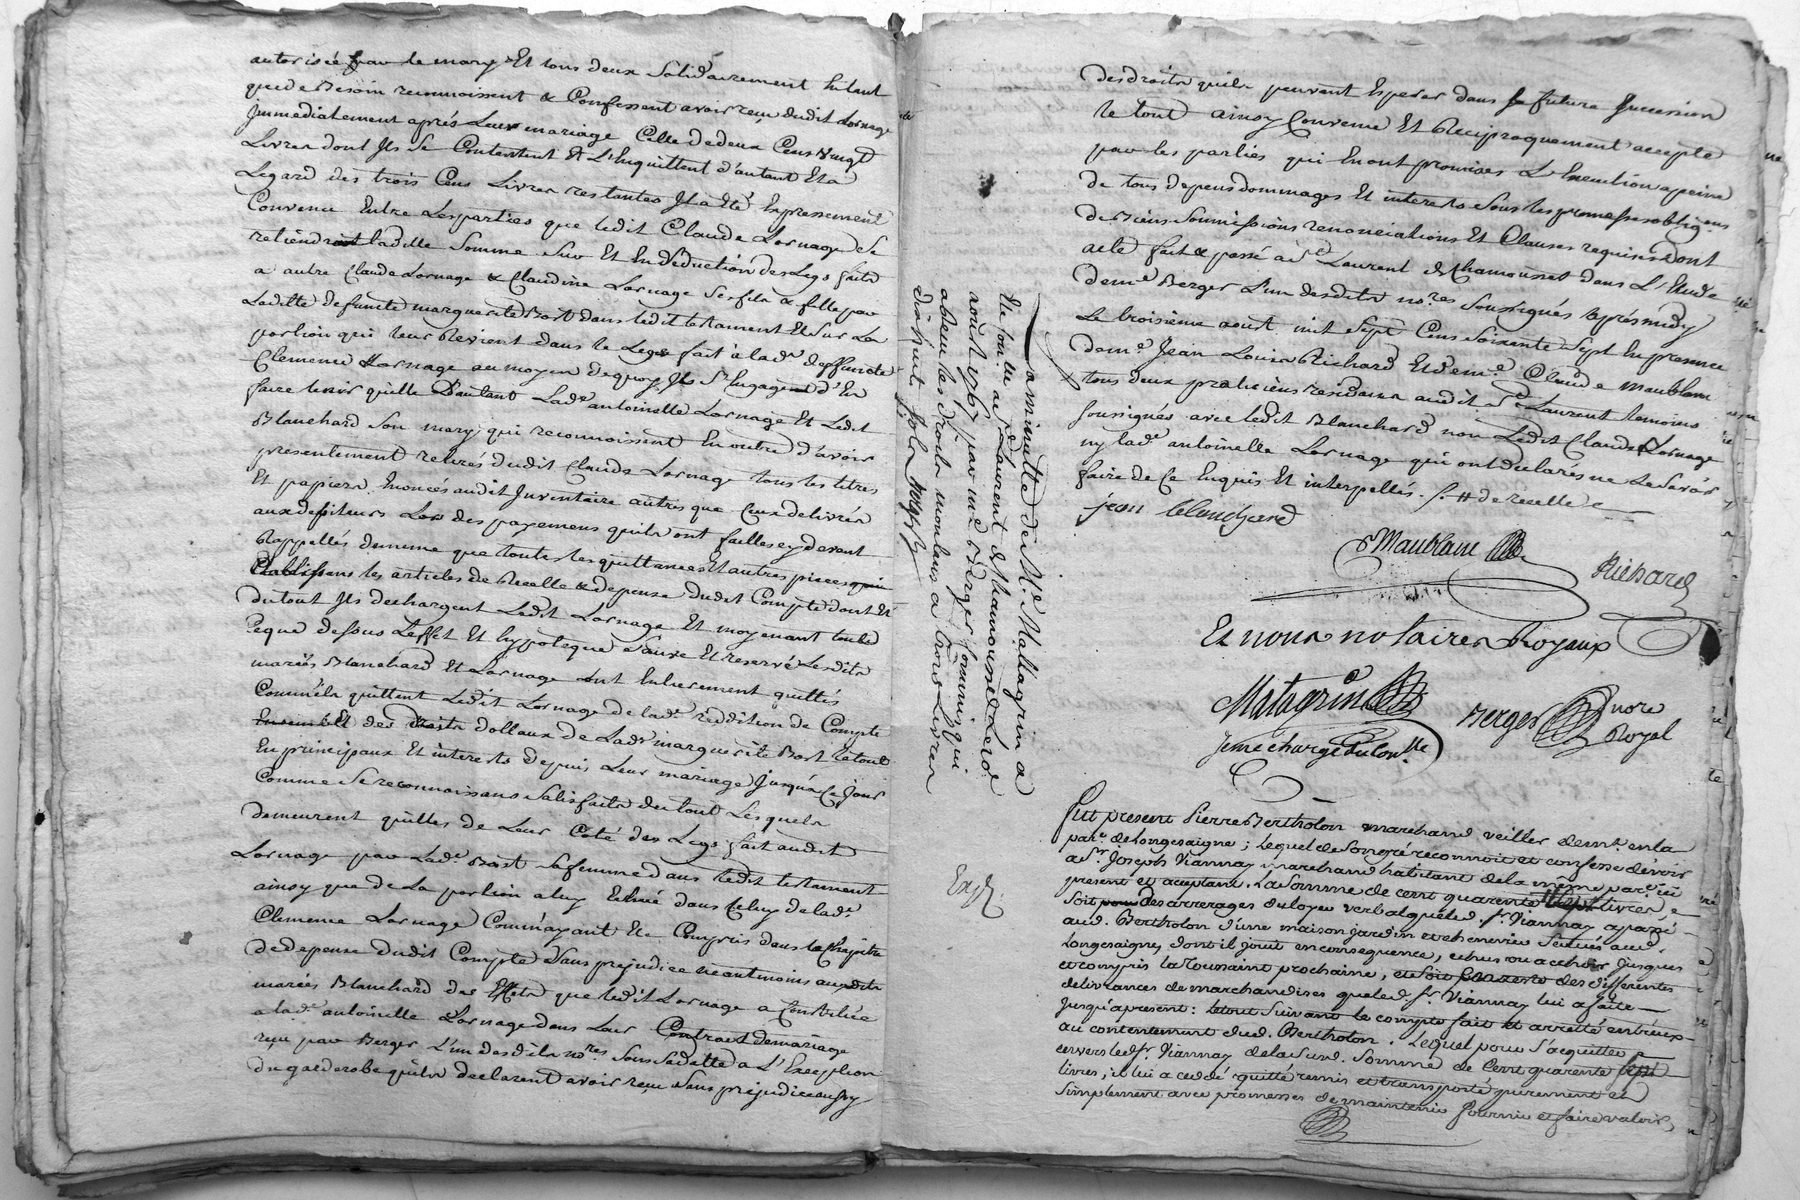 autorisée par le mary Et tous deux Solidairement En tant
que de Besoin reconnoissent & Confessent avoir reçu dudit Lornage
Immediatement aprés Leur mariage Celle de deux Cens vingt
Livres dont Ils Se Contentent Et L'Enquittent d'autant Et a
Legard des trois Cens Livres restantes Il a Eté Expressement
Convenu Entre Les parties que ledit Claude Lornage Se
retiendra ladite Somme Sur Et En Déduction des Legs faits
a autre Claude Lornage & Claudine Lornage Ses fils & fille par
Ladite defuncte marguerite Bost dans ledit testament Et Sur La
portion qui leur Revient dans le Legs fait à lade deffuncte
Clemence Lornage au moyen de quoy Ils S'Engagent d'En
faire tenir quitte D'autant Lade antoinette Lornage Et Ledit
Blanchard Son mary qui reconnoissent En outre d'avoir
presentement retirés dudit Claude Lornage tous les titres
Et papiers Enoncés audit Inventaire autres que Ceux delivrés
aux debiteurs Lors des payemens quils ont faits Cy devant
Rappellés de meme que toutes les quittances Et autres pieces
Etablissans les articles de Recette & depense dudit Compte dont Et
du tout Ils dechargent Ledit Lornage Et moyenant tout
Ceque dessus L'effet Et hypoteque Sauve Et reservé Lesdits
mariés Blanchard Et Lornage ont Entierement quittés
Comm'ils quittent Ledit Lornage de lade reddition de Compte
Ensemble Et des droits dottaux de Lade marguerite Bost le tout
En principaux Et interests depuis Leur mariage Jusqu'a Ce Jour
Comme Se reconnoissans Satisfaits du tout Lesquels
demeurent quittes de Leur Coté des Legs fait audit
Lornage par Lade Bost Sa femme dans ledit testament
ainsy que de La portion a luy Echue dans Celuy de lade
Clemence Lornage Comm'ayant Eté Compris dans le Chapitre
de depense dudit Compte Sans prejudice neantmoins auxdits
mariés Blanchard des Effets que ledit Lornage a Constitués
a lade antoinette Lornage dans Leur Contract de mariage
reçu par Berger L'un desdits nores Sous Sa datte a L'Exception
du garderobe quils declarent avoir reçu Sans prejudice aussy
des droits quils peuvent Esperer dans Sa future Succession
le tout ainsy Convenu Et Reciproquement accepté
par les parties qui En ont promises L'Execution a peine
de tous depens dommages Et interests Sous les promesses obligons
de Biens Soumissions renonciations Et Clauses requises dont
acte fait & passé a St Laurent de Chamousset dans L'Etude
de me Berger L'un desdits nores Soussignés Aprés midy
Le troisieme aout mil Sept Cens Soixante Sept En presence
de me Jean Louis Richard Et de me Claude Maublanc
tous deux praticiens residans audit St Laurent temoins
Soussignés avec ledit Blanchard non Ledit Claude Lornage
ny lade antoinette Lornage qui ont declarés ne Le Savoir
faire de Ce Enquis Et interpellés.
jean blanchard
Maublanc
Richard
Et nous notaires Royaux
Matagrin
Berger nore Royal
La minutte de Me Mattagrin a
Eté Controllé a St Laurent de Chamousset Le
aoust 1767 par me Berger Commis qui
a reçu les droits montans a trois Livres
dix huit Sols
Expé
Fut present Pierre Bertholon marchand veiller demt en la
parse de Longesaigne ; lequel de Son gré reconnoit et confesse devoir
a Sr Joseph Viannay marchand habitant de la même parse ici
present et acceptant. La Somme de cent quarente Sept livres,
Soit pour des arrerages du loyer verbal que led. Sr Viannay a passé
aud. Bertholon d'une maison jardin et chenevier Situés aud.
Longesaigne, dont il jouit en consequence, echus ou a echoir Jusques
et compris la Toussaint prochaine, et Soit pour reste des differentes
delivrances de marchandises que led. Sr Viannay lui a faite
Jusqu'a present : Le tout Suivant le compte fait et arretté entreux
au contentement dud. Bertholon. Lequel pour S'acquitter
envers led. Sr Viannay de la Susd. Somme de Cent quarente Sept
livres ; il lui a cedé quitté remis et transporté purement et
Simplement avec promesses de maintenir fournir et faire valoir,